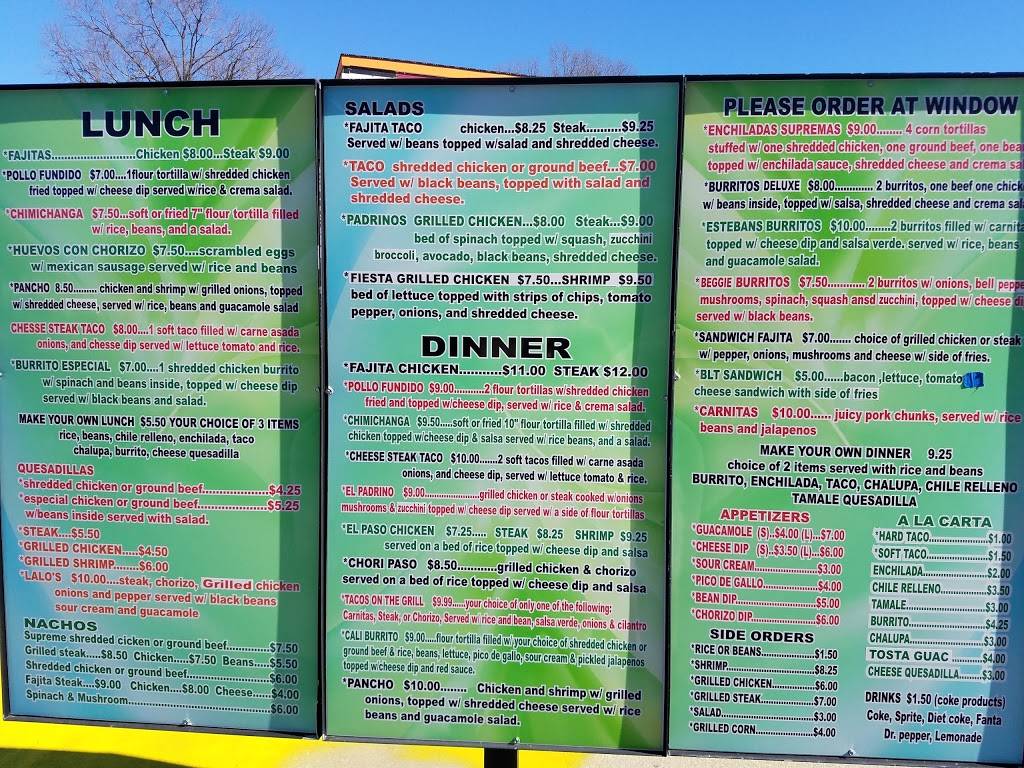 LUNCH
*FAJITAS............................Chicken $8.00...Steak $9.00
*POLLO FUNDIDO $7.00....1flour tortilla w/ shredded chicken
fried topped w/ cheese dip served w/rice & crema salad.
*CHIMICHANGA $7.50...soft or fried 7" flour tortilla filled
w/ rice, beans, and a salad.
*HUEVOS CON CHORIZO $7.50....scrambled eggs
w/ mexican sausage served w/ rice and beans
*PANCHO 8.50........ chicken and shrimp w/ grilled onions, topped
w/ shredded cheese, served w/ rice, beans and guacamole salad
CHESSE STEAK TACO $8.00....1 soft taco filled w/ carne asada
onions, and chesse dip served w/ lettuce tomato and rice.
*BURRITO ESPECIAL $7.00....1 shredded chicken burrito
w/ spinach and beans inside, topped w/ cheese dip
served w/ black beans and salad.
MAKE YOUR OWN LUNCH $5.50 YOUR CHOICE OF 3 ITEMS
rice, beans, chile relleno, enchilada, taco
chalupa, burrito, cheese quesadilla
QUESADILLAS
*shredded chicken or ground beef..................$4.25
*especial chicken or ground beef...................$5.25
w/beans inside served with salad.
*STEAK....$5.50
*GRILLED CHICKEN.....$4.50
*GRILLED SHRIMP.......$6.00
*LALO'S $10.00....steak, chorizo, Grilled chicken
onions and pepper served w/ black beans
sour cream and guacamole
NACHOS
Supreme shredded cicken or ground beef............$7.50
Grilled steak....$8.50 Chicken....$7.50 Beans....$5.50
Shredded chicken or ground beef.....................$6.00
Fajita Steak....$9.00 Chicken....$8.00 Cheese.....$4.00
Spinach & Mushroom....................................$6.00
SALADS
*FAJITA TACO chicken...$8.25 Steak..........$9.25
Served w/ beans topped w/salad and shredded cheese.
*TACO shredded chicken or ground beef...$7.00
Served w/ black beans, topped with salad and
shredded cheese.
*PADRINOS GRILLED CHICKEN...$8.00 Steak...$9.00
bed of spinach topped w/ squash, zucchini
broccoli, avocado, black beans, shredded cheese.
*FIESTA GRILLED CHICKEN $7.50...SHRIMP $9.50
bed of lettuce topped with strips of chips, tomato
pepper, onions, and shredded cheese.
DINNER
*FAJITA CHICKEN...........$11.00 STEAK $12.00
*POLLO FUNDIDO $9.00.........2 flour tortillas w/shredded chicken
fried and topped w/cheese dip, served w/ rice & crema salad.
*CHIMICHANGA $9.50.....soft or fried 10" flour tortilla filled w/ shredded
chicken topped w/cheese dip & salsa served w/ rice beans, and a salad.
*CHEESE STEAK TACO $10.00.......2 soft tacos filled w/ carne asada
onions, and cheese dip, served w/ lettuce tomato & rice.
*EL PADRINO $9.00......................grilled chicken or steak cooked w/onions
mushrooms & zucchini topped w/ cheese dip served w/ a side of flour tortillas
*EL PASO CHICKEN $7.25..... STEAK $8.25 SHRIMP $9.25
served on a bed of rice topped w/ cheese dip and salsa
*CHORI PASO $8.50..........grilled chicken & chorizo
served on a bed of rice topped w/ cheese dip and salsa
*TACOS ON THE GRILL $9.99.....your choice of only one of the following:
Carnitas, Steak, or Chorizo, Served w/ rice and bean, salsa verde, onions & cilantro
*CALI BURRITO $9.00....flour tortilla filled w/ your choice of shredded chicken or
ground beef & rice, beans, lettuce, pico de gallo, sour cream & pickled jalapenos
topped w/cheese dip and red sauce.
*PANCHO $10.00........ Chicken and shrimp w/ grilled
onions, topped w/ shredded cheese served w/ rice
beans and guacamole salad.
PLEASE ORDER AT WINDOW
*ENCHILADAS SUPREMAS $9.00........ 4 corn tortillas
stuffed w/ one shredded chicken, one ground beef, one bea
topped w/ enchilada sauce, shredded cheese and crema sa
*BURRITOS DELUXE $8.00............ 2 burritos, one beef one chick
w/ beans inside, topped w/ salsa, shredded cheese and crema sal
*ESTEBANS BURRITOS $10.00........2 burritos filled w/ carnita
topped w/ cheese dip and salsa verde. served w/ rice, beans
and guacamole salad.
*BEGGIE BURRITOS $7.50........... 2 burritos w/ onions, bell peppe
mushrooms, spinach, squash ansd zucchini, topped w/ cheese di
served w/ black beans.
*SANDWICH FAJITA $7.00....... choice of grilled chicken or steak
w/ pepper, onions, mushrooms and cheese w/ side of fries.
*BLT SANDWICH $5.00......bacon ,lettuce, tomato
cheese sandwich with side of fries
*CARNITAS $10.00...... juicy pork chunks, served w/ rice
beans and jalapenos
MAKE YOUR OWN DINNER 9.25
choice of 2 items served with rice and beans
BURRITO, ENCHILADA, TACO, CHALUPA, CHILE RELLENO
TAMALE QUESADILLA
APPETIZERS
*GUACAMOLE (S)..$4.00 (L)...$7.00
*CHEESE DIP (S)...$3.50 (L)...$6.00
*SOUR CREAM..................$3.00
*PICO DE GALLO................$4.00
*BEAN DIP.......................$5.00
*CHORIZO DIP...................$6.00
SIDE ORDERS
*RICE OR BEANS..............$1.50
*SHRIMP.........................$8.25
*GRILLED CHICKEN............$6.00
*GRILLED STEAK...............$7.00
*SALAD..........................$3.00
*GRILLED CORN.................$4.00
A LA CARTA
*HARD TACO....................$1.00
*SOFT TACO....................$1.50
ENCHILADA....................$2.00
CHILE RELLENO..............$3.50
TAMALE.......................$3.00
BURRITO......................$4.25
CHALUPA.....................$3.00
TOSTA GUAC ...........$4.00
CHEESE QUESADILLA.......$3.00
DRINKS $1.50 (coke products)
Coke, Sprite, Diet coke, Fanta
Dr. pepper, Lemonade